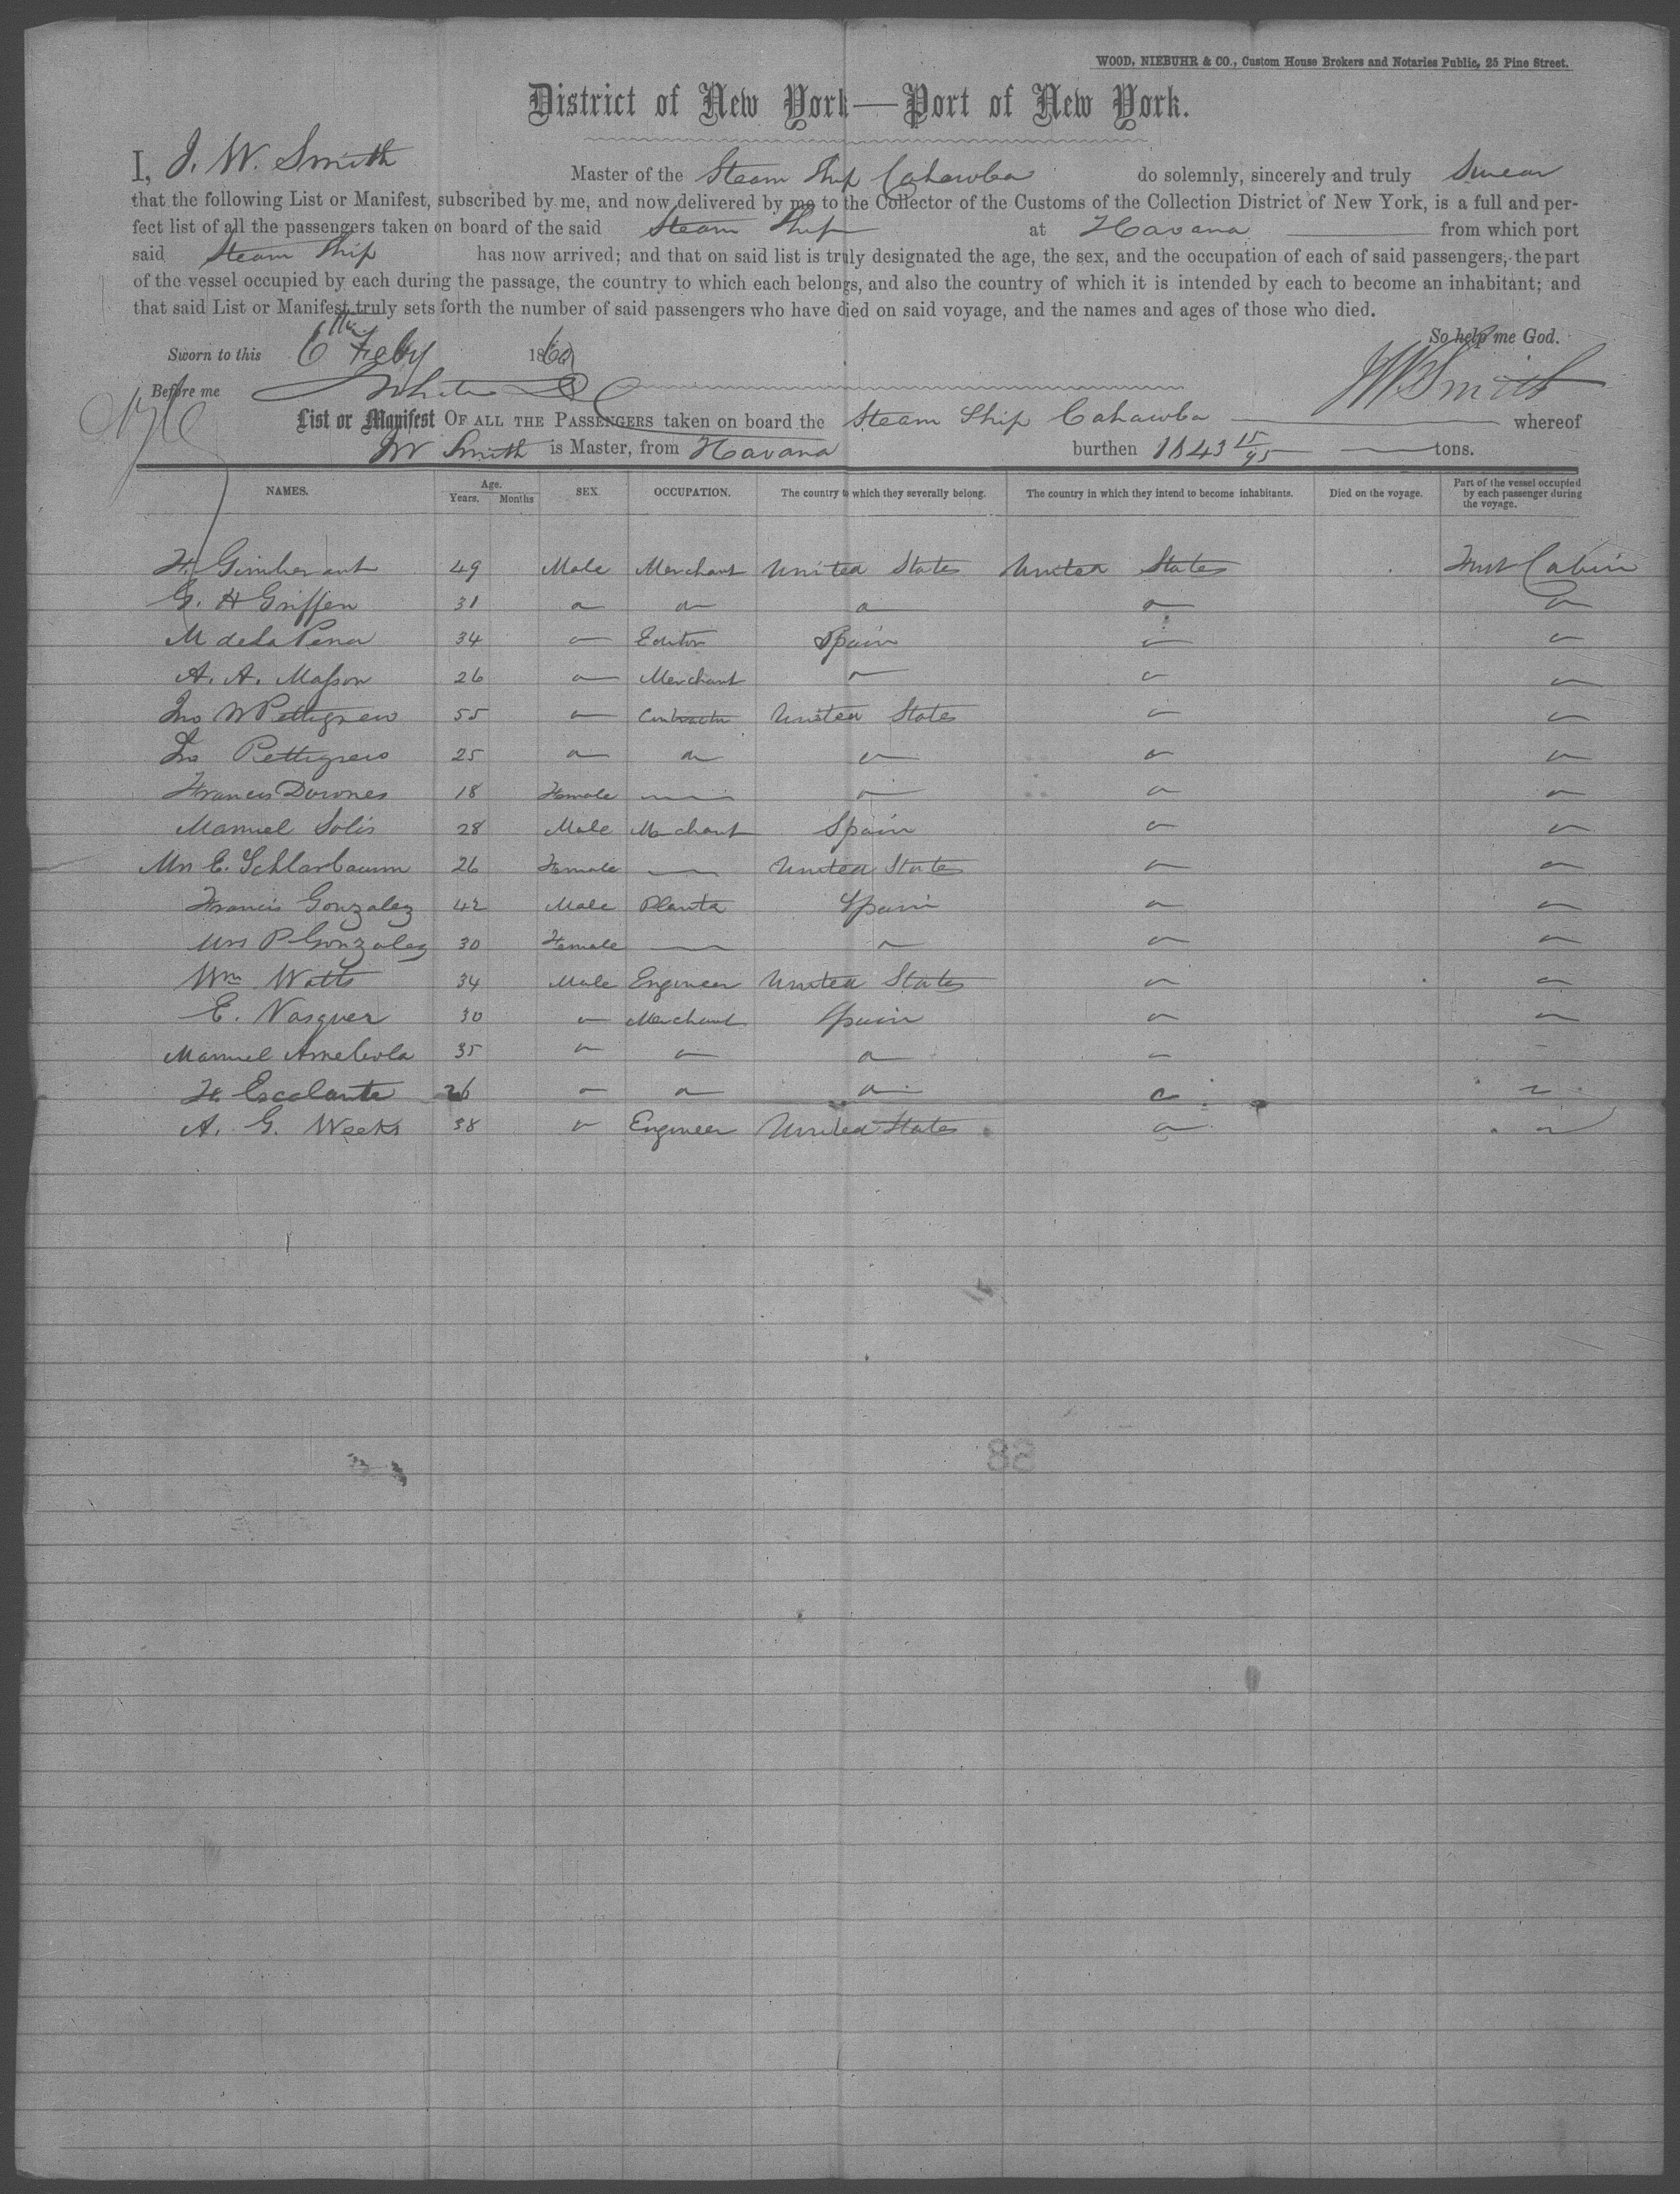 WOOD, NIEBUHR & CO., Custom House Brokers and Notaries Public, 25 Pine Street.
District of New York—Port of New York.
I, J. W. Smith Master of the Steam Ship Cahawba do solemnly, sincerely and truly Swear
that the following List or Manifest, subscribed by me, and now delivered by me to the Collector of the Customs of the Collection District of New York, is a full and per-
fect list of all the passengers taken on board of the said Steam Ship at Havana from which port
said Steam Ship has now arrived; and that on said list is truly designated the age, the sex, and the occupation of each of said passengers, the part
of the vessel occupied by each during the passage, the country to which each belongs, and also the country of which it is intended by each to become an inhabitant; and
that said List or Manifest truly sets forth the number of said passengers who have died on said voyage, and the names and ages of those who died.
So help me God.
Sworn to this 6th Feby 186
Before me JW Smith
List or Manifest OF ALL THE PASSENGERS taken on board the Steam Ship Cahawba whereof
JW Smith is Master, from Havana burthen 1843 15/95 tons.
NAMES. Age. Years. Months SEX. OCCUPATION. The country to which they severally belong. The country in which they intend to become inhabitants. Died on the voyage. Part of the vessel occupied by each passenger during the voyage.
49 Male Merchant United States United States First Cabin
G. H Griffen 31 " " " " "
M de la Pena 34 " Editor Spain " "
A. A. Masson 26 " Merchant " " "
Jno W Pettigrew 55 " Contractor United States " "
Jno Pettigrew 25 " " " " "
Francis Downes 18 Female — " " "
Manuel Solis 28 Male Merchant Spain " "
Mrs E. Schlarbaum 26 Female — United States " "
Francis Gonzalez 42 Male Planta Spain " "
Mrs P Gonzalez 30 Female — " " "
Wm Watts 34 Male Engineer United States " "
E. Vasquer 30 " Merchant Spain " "
Manuel 35 " " " " "
Escalante 26 " " " " "
A. G. Weeks 38 " Engineer United States " "
88